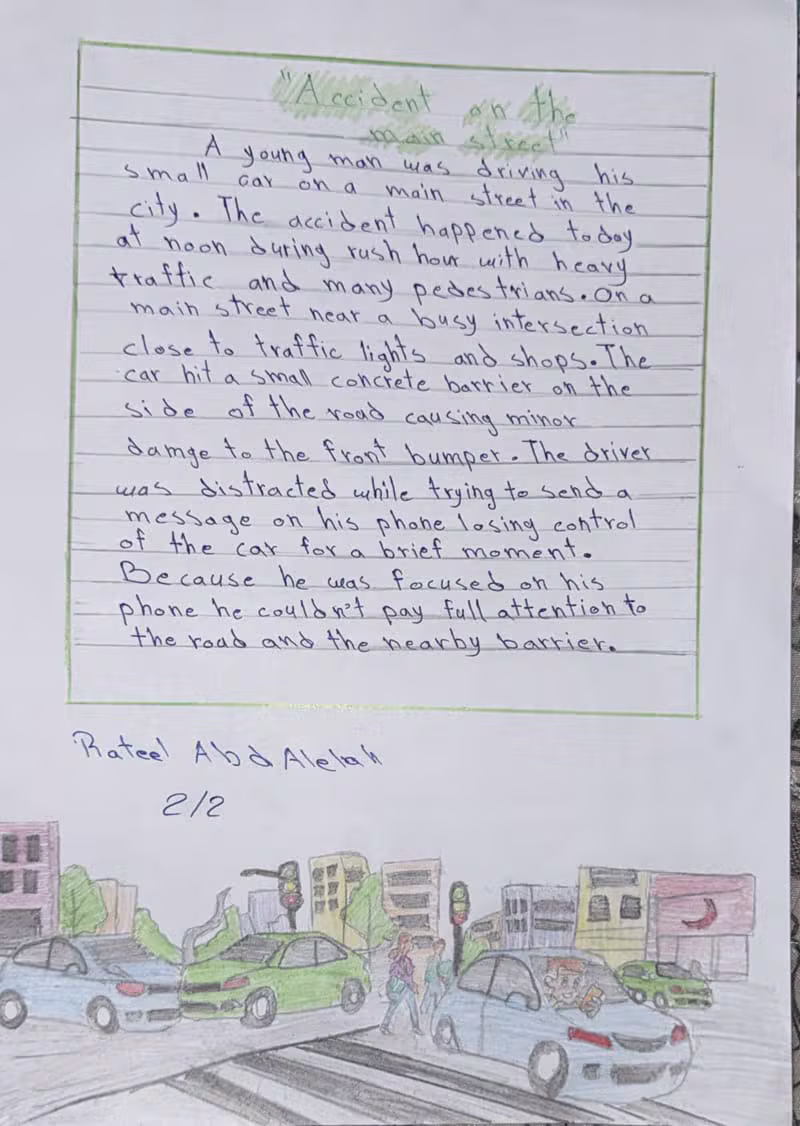 "Accident on the
main street"
A young man was driving his
small car on a main street in the
city. The accident happened today
at noon during rush hour with heavy
traffic and many pedestrians. On a
main street near a busy intersection
close to traffic lights and shops. The
car hit a small concrete barrier on the
side of the road causing minor
damge to the front bumper. The driver
was distracted while trying to send a
message on his phone losing control
of the car for a brief moment.
Because he was focused on his
phone he couldn't pay full attention to
the road and the nearby barrier.
Rateel Abd Alelah
2/2